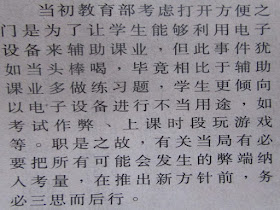 当初教育部考虑打开方便之
门是为了让学生能够利用电子
设备来辅助课业，但此事件犹
如当头棒喝，毕竟相比于辅助
课业多做练习题，学生更倾向
以电子设备进行不当用途，如
考试作弊、上课时段玩游戏
等。职是之故，有关当局有必
要把所有可能会发生的弊端纳
入考量，在推出新方针前，务
必三思而后行。